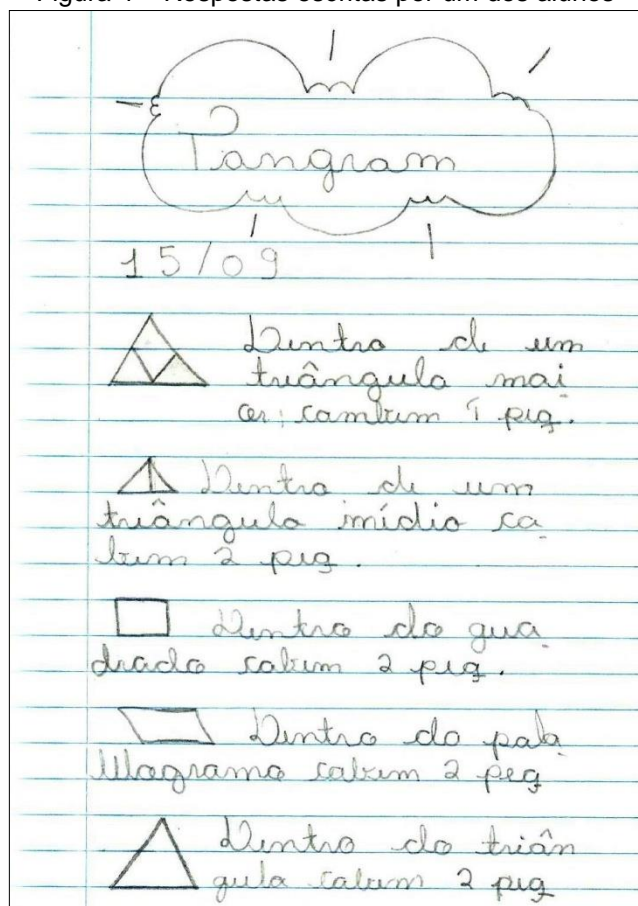 Figura 4 – Respostas escritas por um dos alunos
Tangram
15/09
Dentro de um
triângulo mai
or; cambem peq.
Dentro de um
triângulo médio ca
bem 2 peq.
Dentro do qua
drado cabem 2 peq.
Dentro do pala
lelograma cabem 2 peq
Dentro do triân
gulo cabem 2 peq